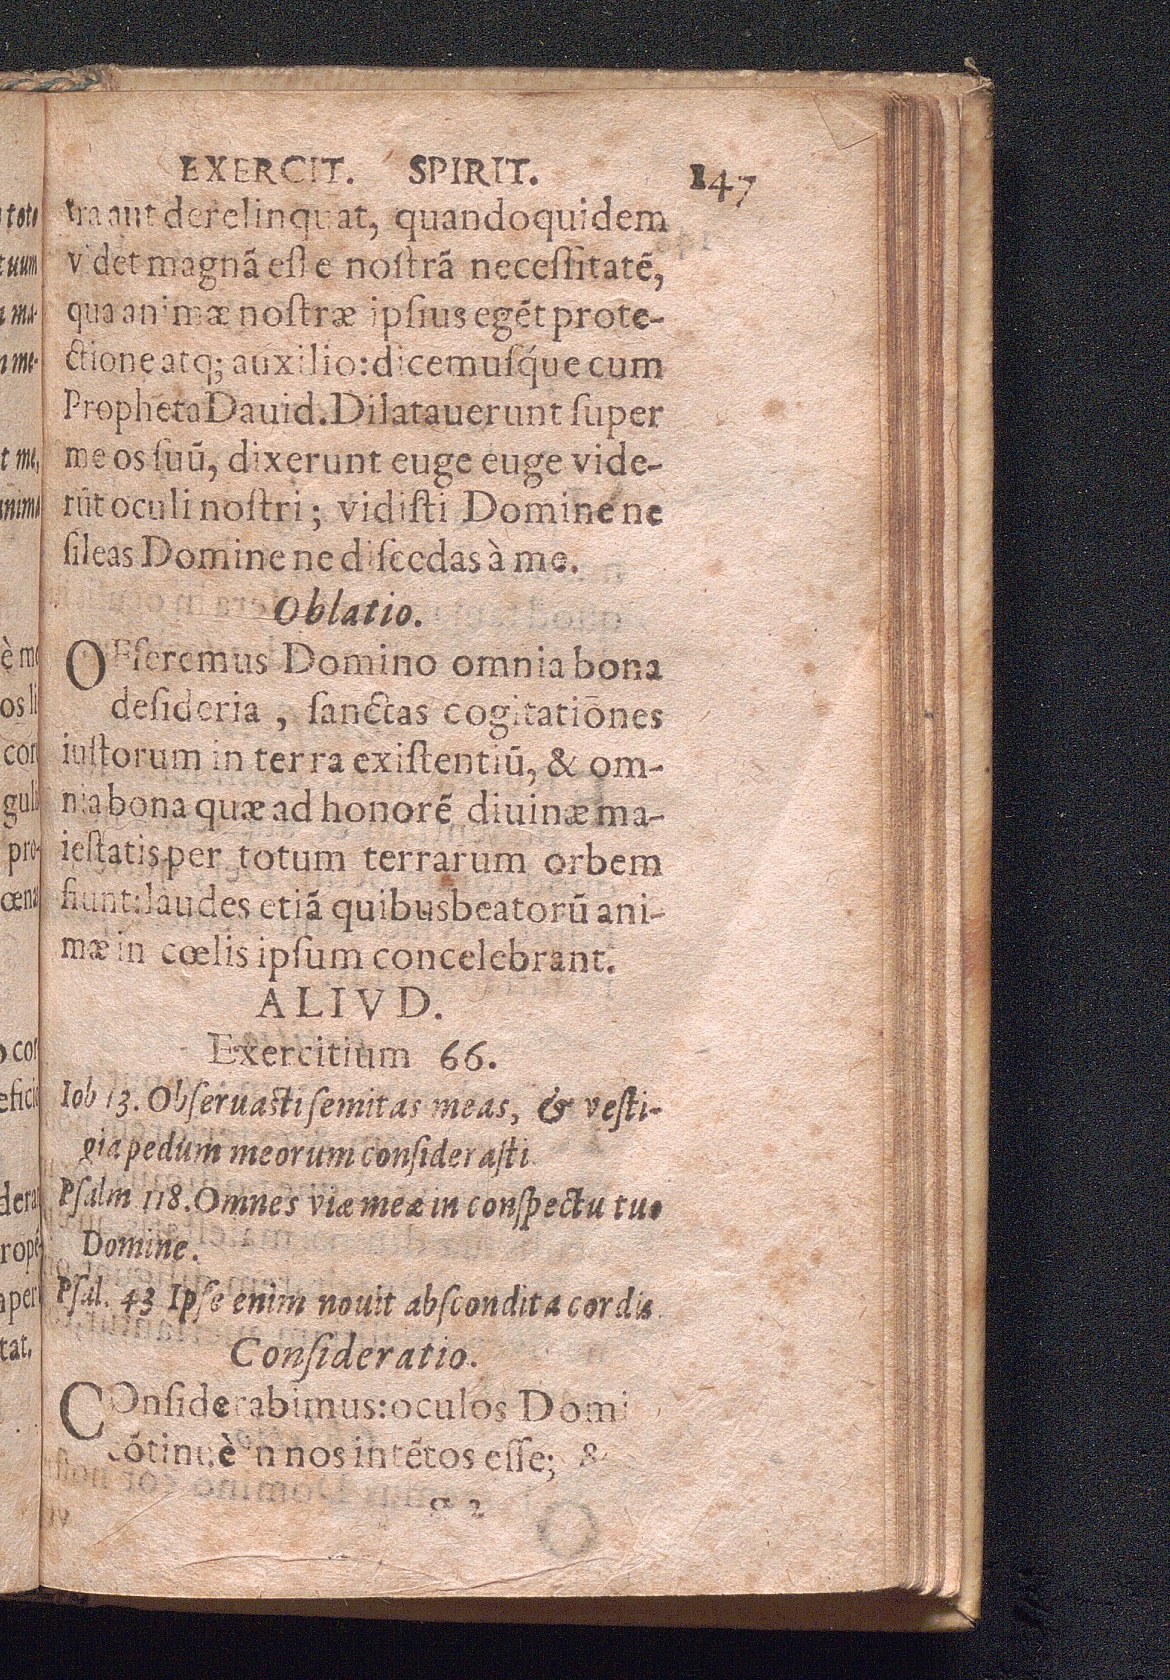 EXERCIT. SPIRIT. 147
tra aut derelinquat, quandoquidem
videt magnã eſſe noſtrã neceſſitatẽ,
qua animæ noſtræ ipſius egẽt prote-
ctione atq; auxilio: dicemuſq́ue cum
Propheta Dauid. Dilatauerunt ſuper
me os ſuũ, dixerunt euge euge vide-
rũt oculi noſtri; vidiſti Domine ne
ſileas Domine ne diſcedas à me.
Oblatio.
OFferemus Domino omnia bona
deſideria, ſanctas cogitatiōnes
iuſtorum in terra exiſtentiũ, & om-
nia bona quæ ad honorẽ diuinæ ma-
ieſtatis per totum terrarum orbem
fiunt: laudes etiã quibus beatorũ ani-
mæ in cœlis ipſum concelebrant.
ALIVD.
Exercitium 66.
Iob 13. Obſeruaſti ſemitas meas, & veſti-
gia pedum meorum conſideraſti.
Pſalm 118. Omnes viæ meæ in conſpectu tuo
Domine.
Pſal. 43 Ipſe enim nouit abſcondita cordis.
Conſideratio.
COnſiderabimus: oculos Domi
cõtinuè in nos intẽtos eſſe; &
2